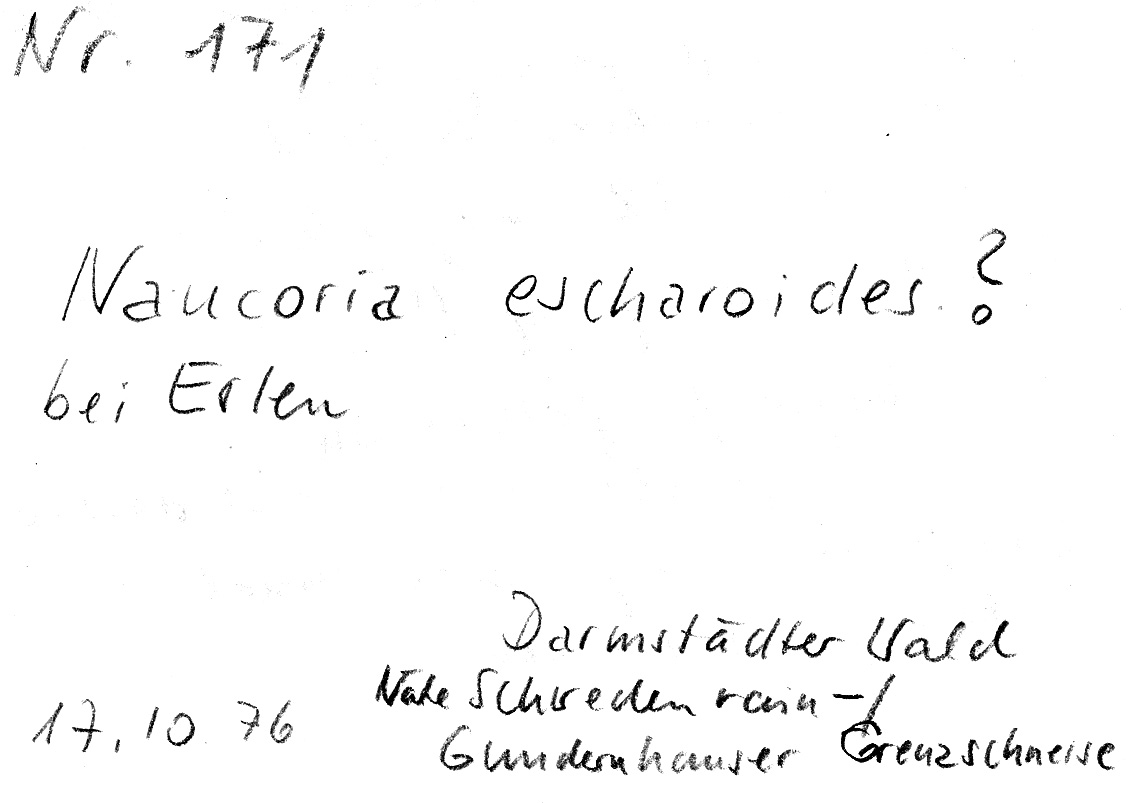 Nr. 171
Naucoria escharoides ?
bei Erlen
Darmstädter Wald
Nähe Schwedenrain-/
17.10.76 Gundernhauser Grenzschneise